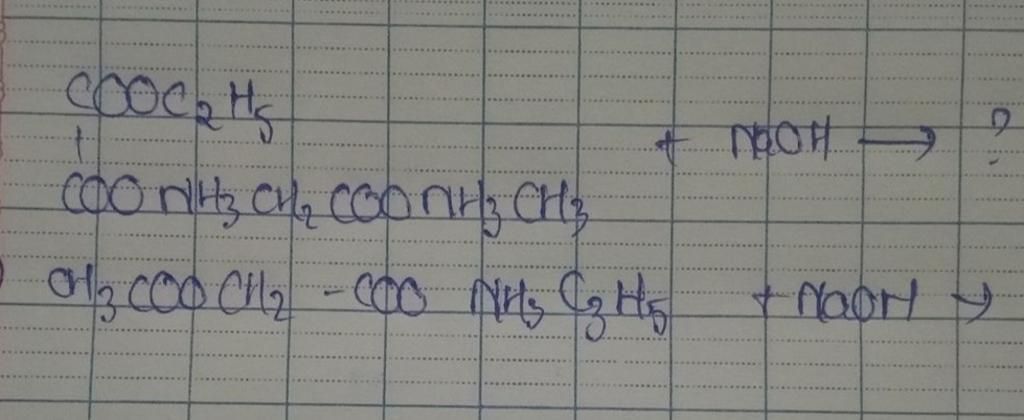 COOC₂H₅
+ NaOH → ?
COONH₃CH₂COONH₃CH₃
CH₃COOCH₂-COO NH₃C₃H₅ + NaOH →